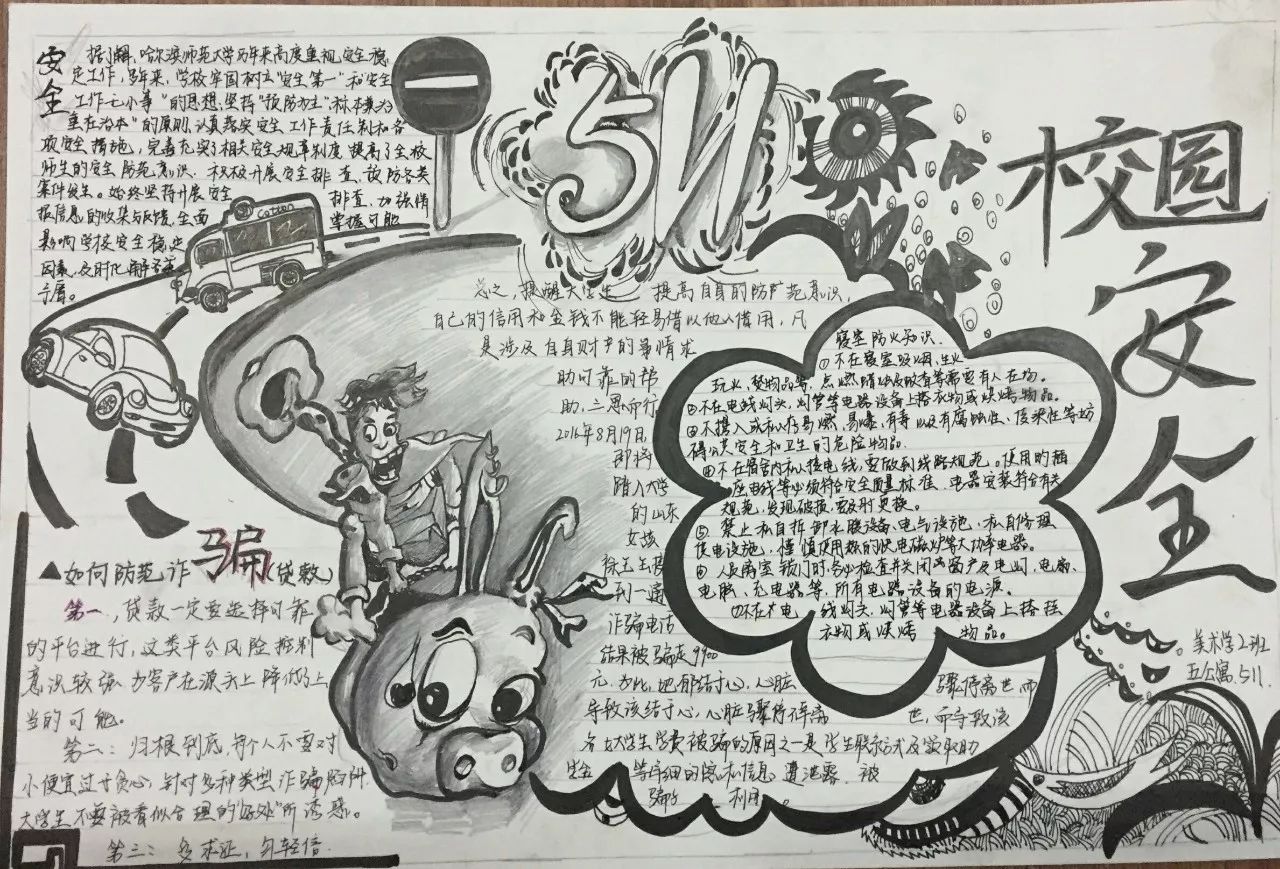 安全
据了解,哈尔滨师范大学历年来高度重视安全稳
定工作,多年来,学校牢固树立“安全第一”和安全
工作无小事”的思想,坚持“预防为主,标本兼治
重在治本”的原则,认真落实安全工作责任制和各
项安全措施,完善充实了相关安全规章制度,提高了全校
师生的安全防范意识.积极开展安全排查、预防各类
案件发生。始终坚持开展安全 排查、加强情
报信息的收集与反馈,全面 掌握可能
影响学校安全稳定
因素,及时化解
Cotton
511
校园安全
总之,提醒大学生 提高自身的防范意识,
自己的信用和金钱不能轻易借以他人借用,凡
是涉及自身财产的事情求
助可靠的帮
助,三思而行
2016年8月19日,
即将
踏入大学
的山东
女孩
徐玉玉接
到一通
诈骗电话
结果被骗走9900
元,为此,她郁结于心,心脏 骤停离世而
导致该结于心,心脏骤停
各女大学生学费被骗的原因之一是学生联系方式及
等详细的隐私信息遭泄露.被
骗子 利用。
寝室防火知识.
①不在寝室吸烟、生火
玩火,焚物品等,点燃
②不在电线灯头,灯管等电器设备上搭衣物或烘烤物品。
③不携入或私存易燃、易爆、有毒以及有腐蚀性、传染性等妨
碍公共安全和卫生的危险物品.
④不在宿舍内私接电线,要做到线路规范。使用的插
座电线等必须符合安全质量标准、电器安装符合有关
规范,发现破损,要及时更换。
⑤禁止私自拆卸水暖设备、电气设施,私自修理
供电设施,谨慎使用热的快电磁炉等大功率电器。
⑥人员离室锁门时,务必检查并关闭窗户及电灯、电扇、
电脑、充电器等,所有电器设备的电源。
⑦不在电 线灯头,灯管等电器设备上搭挂
衣物或烘烤 物品。
▲如何防范诈骗(贷款)
第一,贷款一定要选择可靠
的平台进行,这类平台风险控制
意识较强 为客户在源头上降低
当的可能。
第二:归根到底,每个人不要对
小便宜过于贪心,针对多种类型诈骗陷阱
大学生不要被看似合理的“好处”所诱惑。
第三:多求证,勿轻信.
美术学2班
五公寓.511